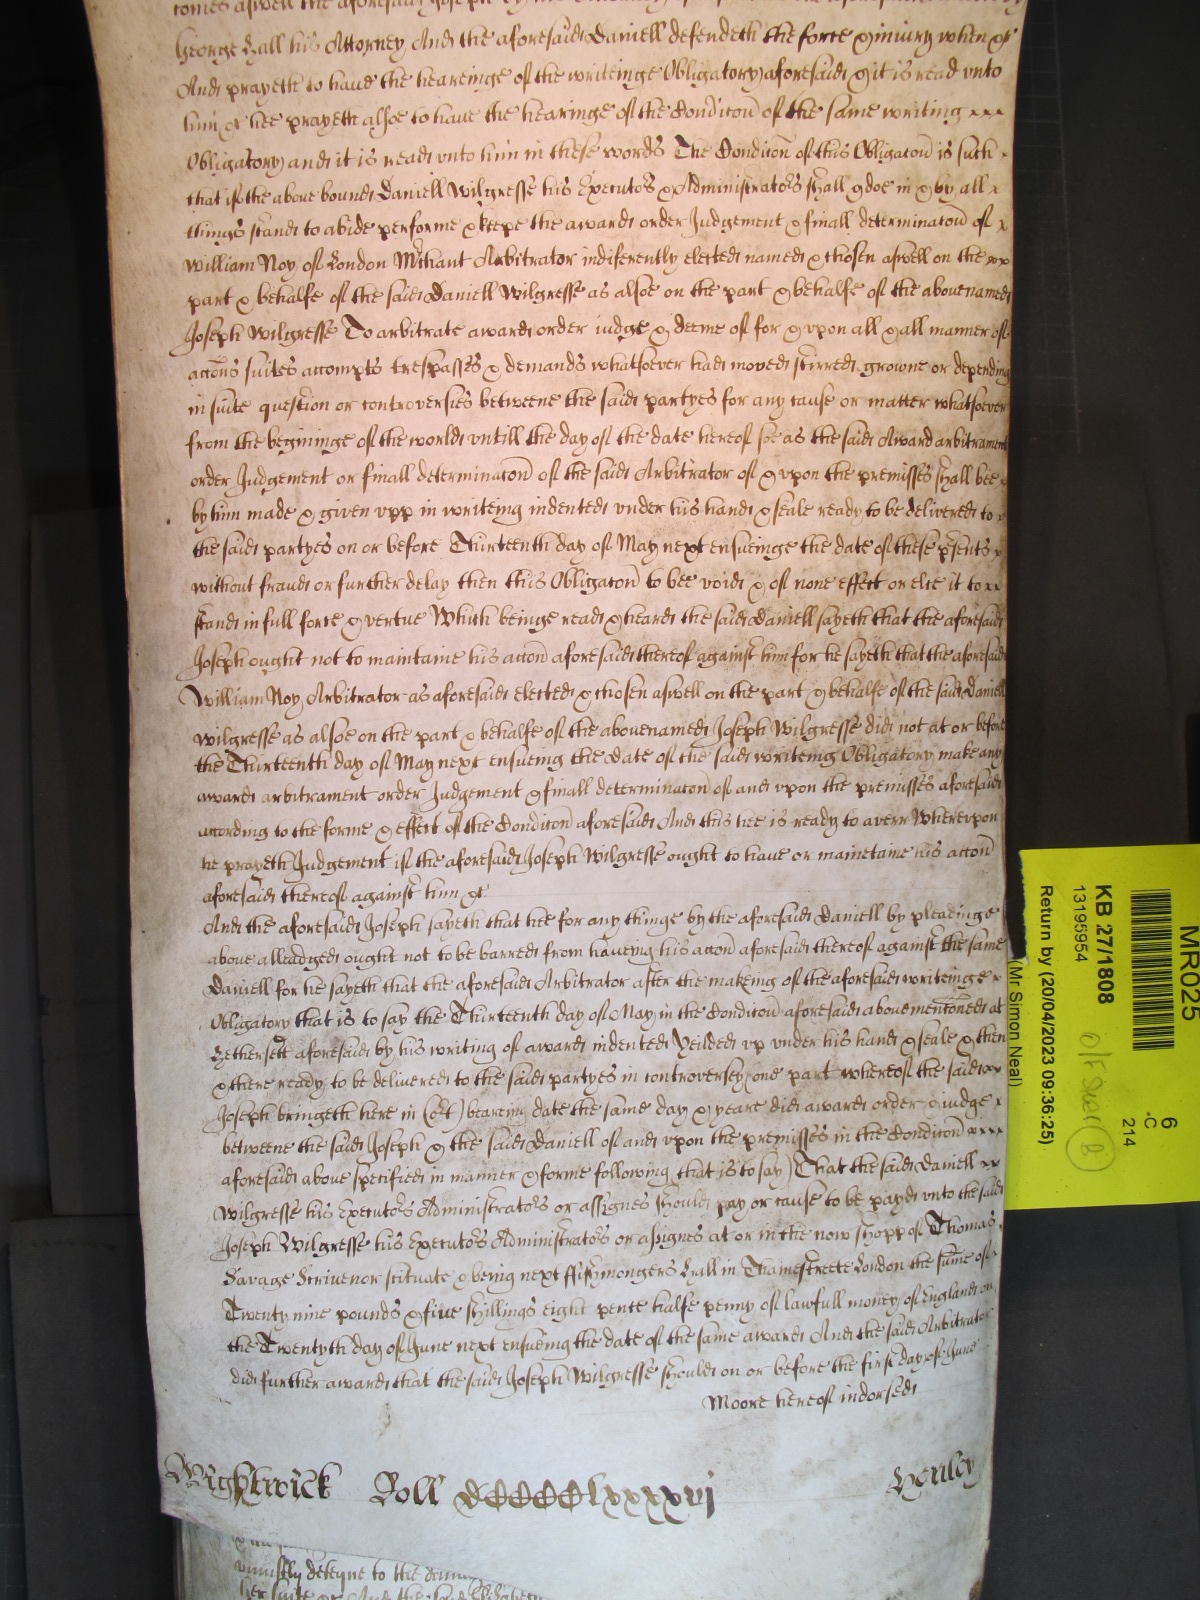 comes aswell the aforesaid Joseph by his Attorney
George Hall his Attorney And the aforesaid Daniell defendeth the force & iniury when &c
And prayeth to have the heareinge of the writeinge Obligatory aforesaid & it is read vnto
him &c hee prayeth alsoe to have the hearinge of the Condicon of the same writing
Obligatory and it is read vnto him in these words The Condicon of this Obligacon is such
that if the above bound Daniell Wilgresse his Executors & Administrators shall & doe in & by all
things stand to abide performe & keepe the award order Judgement & finall determinacon of
William Noy of London Mrchant Arbitrator indiferently elected named & chosen aswell on the
part & behalfe of the said Daniell Wilgresse as alsoe on the part & behalfe of the abovenamed
Joseph Wilgresse To arbitrate award order iudge & deeme of for & vpon all & all manner of
accons suites accompts trespasses & demands whatsoever had moved stirred growne or depending
in suite question or controversies betweene the said partyes for any cause or matter whatsoever
from the begininge of the world vntill the day of the date hereof soe as the said Award arbitrament
order Judgement or finall determinacon of the said Arbitrator of & vpon the premisses shall bee
by him made & given vpp in writeing indented under his hand & seale ready to be delivered to
the said partyes on or before Thirteenth day of May next ensueinge the date of these prsents
without fraud or further delay then this Obligacon to bee void & of none effect or else it to
stand in full force & vertue Which beinge read & heard the said Daniell sayeth that the aforesaid
Joseph ought not to maintaine his accon aforesaid thereof against him for he sayeth that the aforesaid
William Noy Arbitrator as aforesaid elected & chosen aswell on the part & behalfe of the said Daniell
Wilgresse as alsoe on the part & behalfe of the abovenamed Joseph Wilgresse did not at or before
the Thirteenth day of May next ensueing the date of the said writeing Obligatory make any
award arbitrament order Judgement & finall determinacon of and vpon the premisses aforesaid
according to the forme & effect of the Condicon aforesaid And this hee is ready to averr Wherevpon
he prayeth Judgement if the aforesaid Joseph Wilgresse ought to have or mainetaine his accon
aforesaid thereof against him &c
And the aforesaid Joseph sayeth that hee for any thinge by the aforesaid Daniell by pleadinge
above alleadged ought not to be barred from haveing his accon aforesaid thereof against the same
Daniell for he sayeth that the aforesaid Arbitrator after the makeing of the aforesaid writeinge
Obligatory that is to say the Thirteenth day of May in the Condicon aforesaid above menconed at
Hethersett aforesaid by his writing of award indented Yeilded vp under his hand & seale & then
& there ready to be delivered to the said partyes in controversey (one part whereof the said
Joseph bringeth here in Ct) beareing date the same day & yeare did award order & iudge
betweene the said Joseph & the said Daniell of and vpon the premisses in the Condicon
aforesaid above specified in manner & forme following (that is to say) That the said Daniell
Wilgresse his Executors Administrators or assignes should pay or cause to be payd vnto the said
Joseph Wilgresse his Executors Administrators or assignes at or in the now shopp of Thomas
Savage Scrivenor scituate & being next ffishmongers Hall in Thamestreete London the sume of
Twenty nine pounds & five shillings eight pence halfe penny of lawfull money of England on
the Twentyth day of June next ensueing the date of the same award And the said Arbitrator
did further award that the said Joseph Wilgresse should on or before the first day of June
Moore hereof indorsed
Wightwick Roll DCCCClxxxxvj Henley
viniustly deteyne to the
her suite &c And the said Elizabeth
MR025
6
-C
214
KB 27/1808
13195954
o/f Shelf B
Return by (20/04/2023 09:36:25)
(Mr Simon Neal)